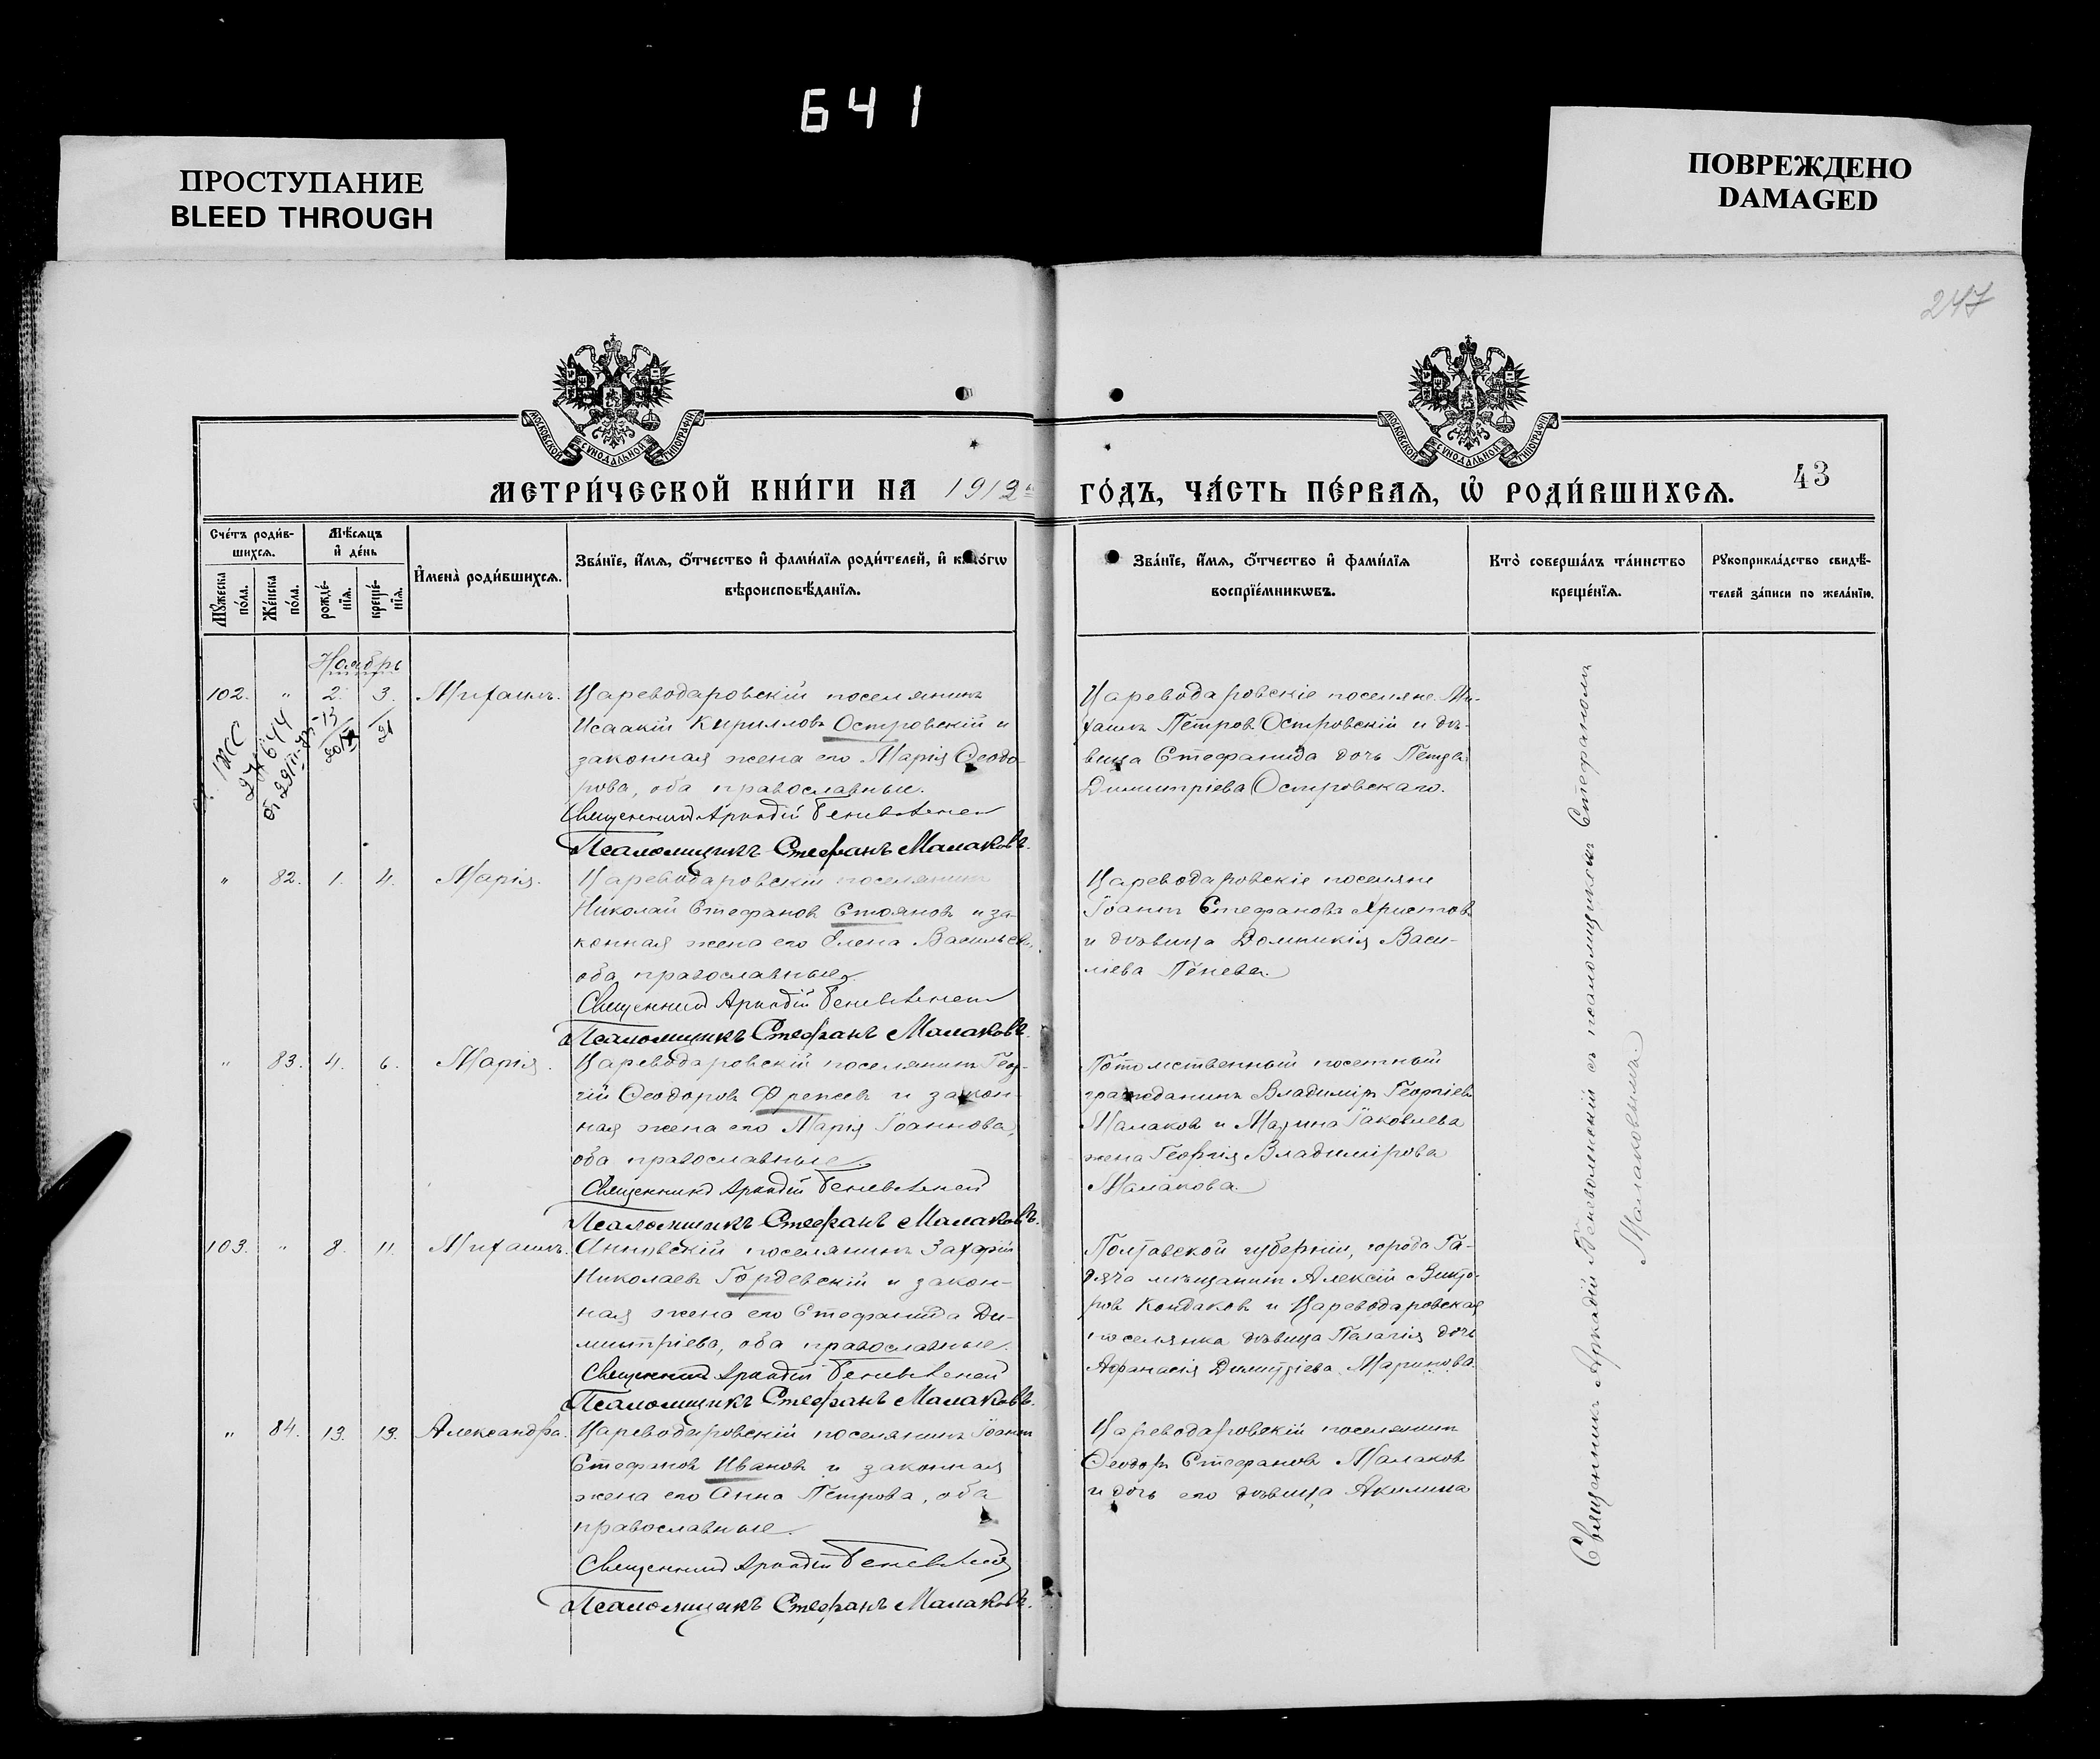 641
ПРОСТУПАНИЕ
BLEED THROUGH
ПОВРЕЖДЕНО
DAMAGED
247
МОСКОВСКОЙ СѴНОДАЛЬНОЙ ТИПОГРАФІИ
МОСКОВСКОЙ СѴНОДАЛЬНОЙ ТИПОГРАФІИ
МЕТРИ́ЧЕСКОЙ КНИ́ГИ НА 1912
ГО́ДЪ, ЧА́СТЬ ПЕ́РВАѦ, Ѽ РОДИ́ВШИХСѦ.
43
Сче́тъ роди́в-
шихсѧ.
Мꙋ́жеска по́ла.
Же́нска по́ла.
Мѣ́сѧцъ
и҆ де́нь
рожде́-
нїѧ.
креще́-
нїѧ.
И҆мена̀ роди́вшихсѧ.
Зва́нїе, и҆́мѧ, ѻ҆́тчество и҆ фами́лїѧ роди́телей, и҆ како́гѡ
вѣроисповѣ́данїѧ.
Зва́нїе, и҆́мѧ, ѻ҆́тчество и҆ фами́лїѧ
воспрїе́мникѡвъ.
Кто̀ соверша́лъ та́инство
креще́нїѧ.
Рꙋкоприкла́дство свидѣ́-
телей за́писи по жела́нїю.
Ноябрь
102. " 2. 3. Михаилъ.
Цареводаровскій поселянинъ
Исаакій Кирилловъ Островскій и
законная жена его Марія Ѳеодо-
рова, оба православные.
Священникъ Аркадій
Псаломщикъ Стефанъ Малаковъ.
Цареводаровскіе поселяне Ми-
хаилъ Петровъ Островскій и дѣ-
вица Стефанида дочь Петра
Димитріева Островскаго.
" 82. 1. 4. Марія.
Цареводаровскій поселянинъ
Николай Стефановъ Стояновъ и за-
конная жена его Елена Васильев.
оба православные.
Священникъ Аркадій
Псаломщикъ Стефанъ Малаковъ.
Цареводаровскіе поселяне
Іоаннъ Стефановъ Христовъ
и дѣвица Домникія Васи-
ліева Пенева.
" 83. 4. 6. Марія.
Цареводаровскій поселянинъ Геор-
гій Ѳеодоровъ Френсевъ и закон-
ная жена его Марія Іоаннова,
оба православные.
Священникъ Аркадій
Псаломщикъ Стефанъ Малаковъ.
Потомственный почетный
гражданинъ Владиміръ Георгіевъ
Малаковъ и Марина Іаковлева
жена Георгія Владимірова
Малакова.
103. " 8. 11. Михаилъ.
Анновскій поселянинъ Захарій
Николаевъ Гордевскій и закон-
ная жена его Стефанида Ди-
митріева, оба православные.
Священникъ Аркадій
Псаломщикъ Стефанъ Малаковъ.
Полтавской губерніи, города Га-
дяча мѣщанинъ Алексій Викто-
ровъ Кондаковъ и Цареводаровская
поселянка дѣвица Палагія дочь
Аѳанасія Димитріева Маринова.
" 84. 13. 13. Александра.
Цареводаровскій поселянинъ Іоаннъ
Стефановъ Ивановъ и законная
жена его Анна Петрова, оба
православные.
Священникъ Аркадій
Псаломщикъ Стефанъ Малаковъ.
Цареводаровскій поселянинъ
Ѳеодоръ Стефановъ Малаковъ
и дочь его дѣвица Акилина
Священникъ Аркадій съ псаломщикомъ Стефаномъ
Малаковымъ.